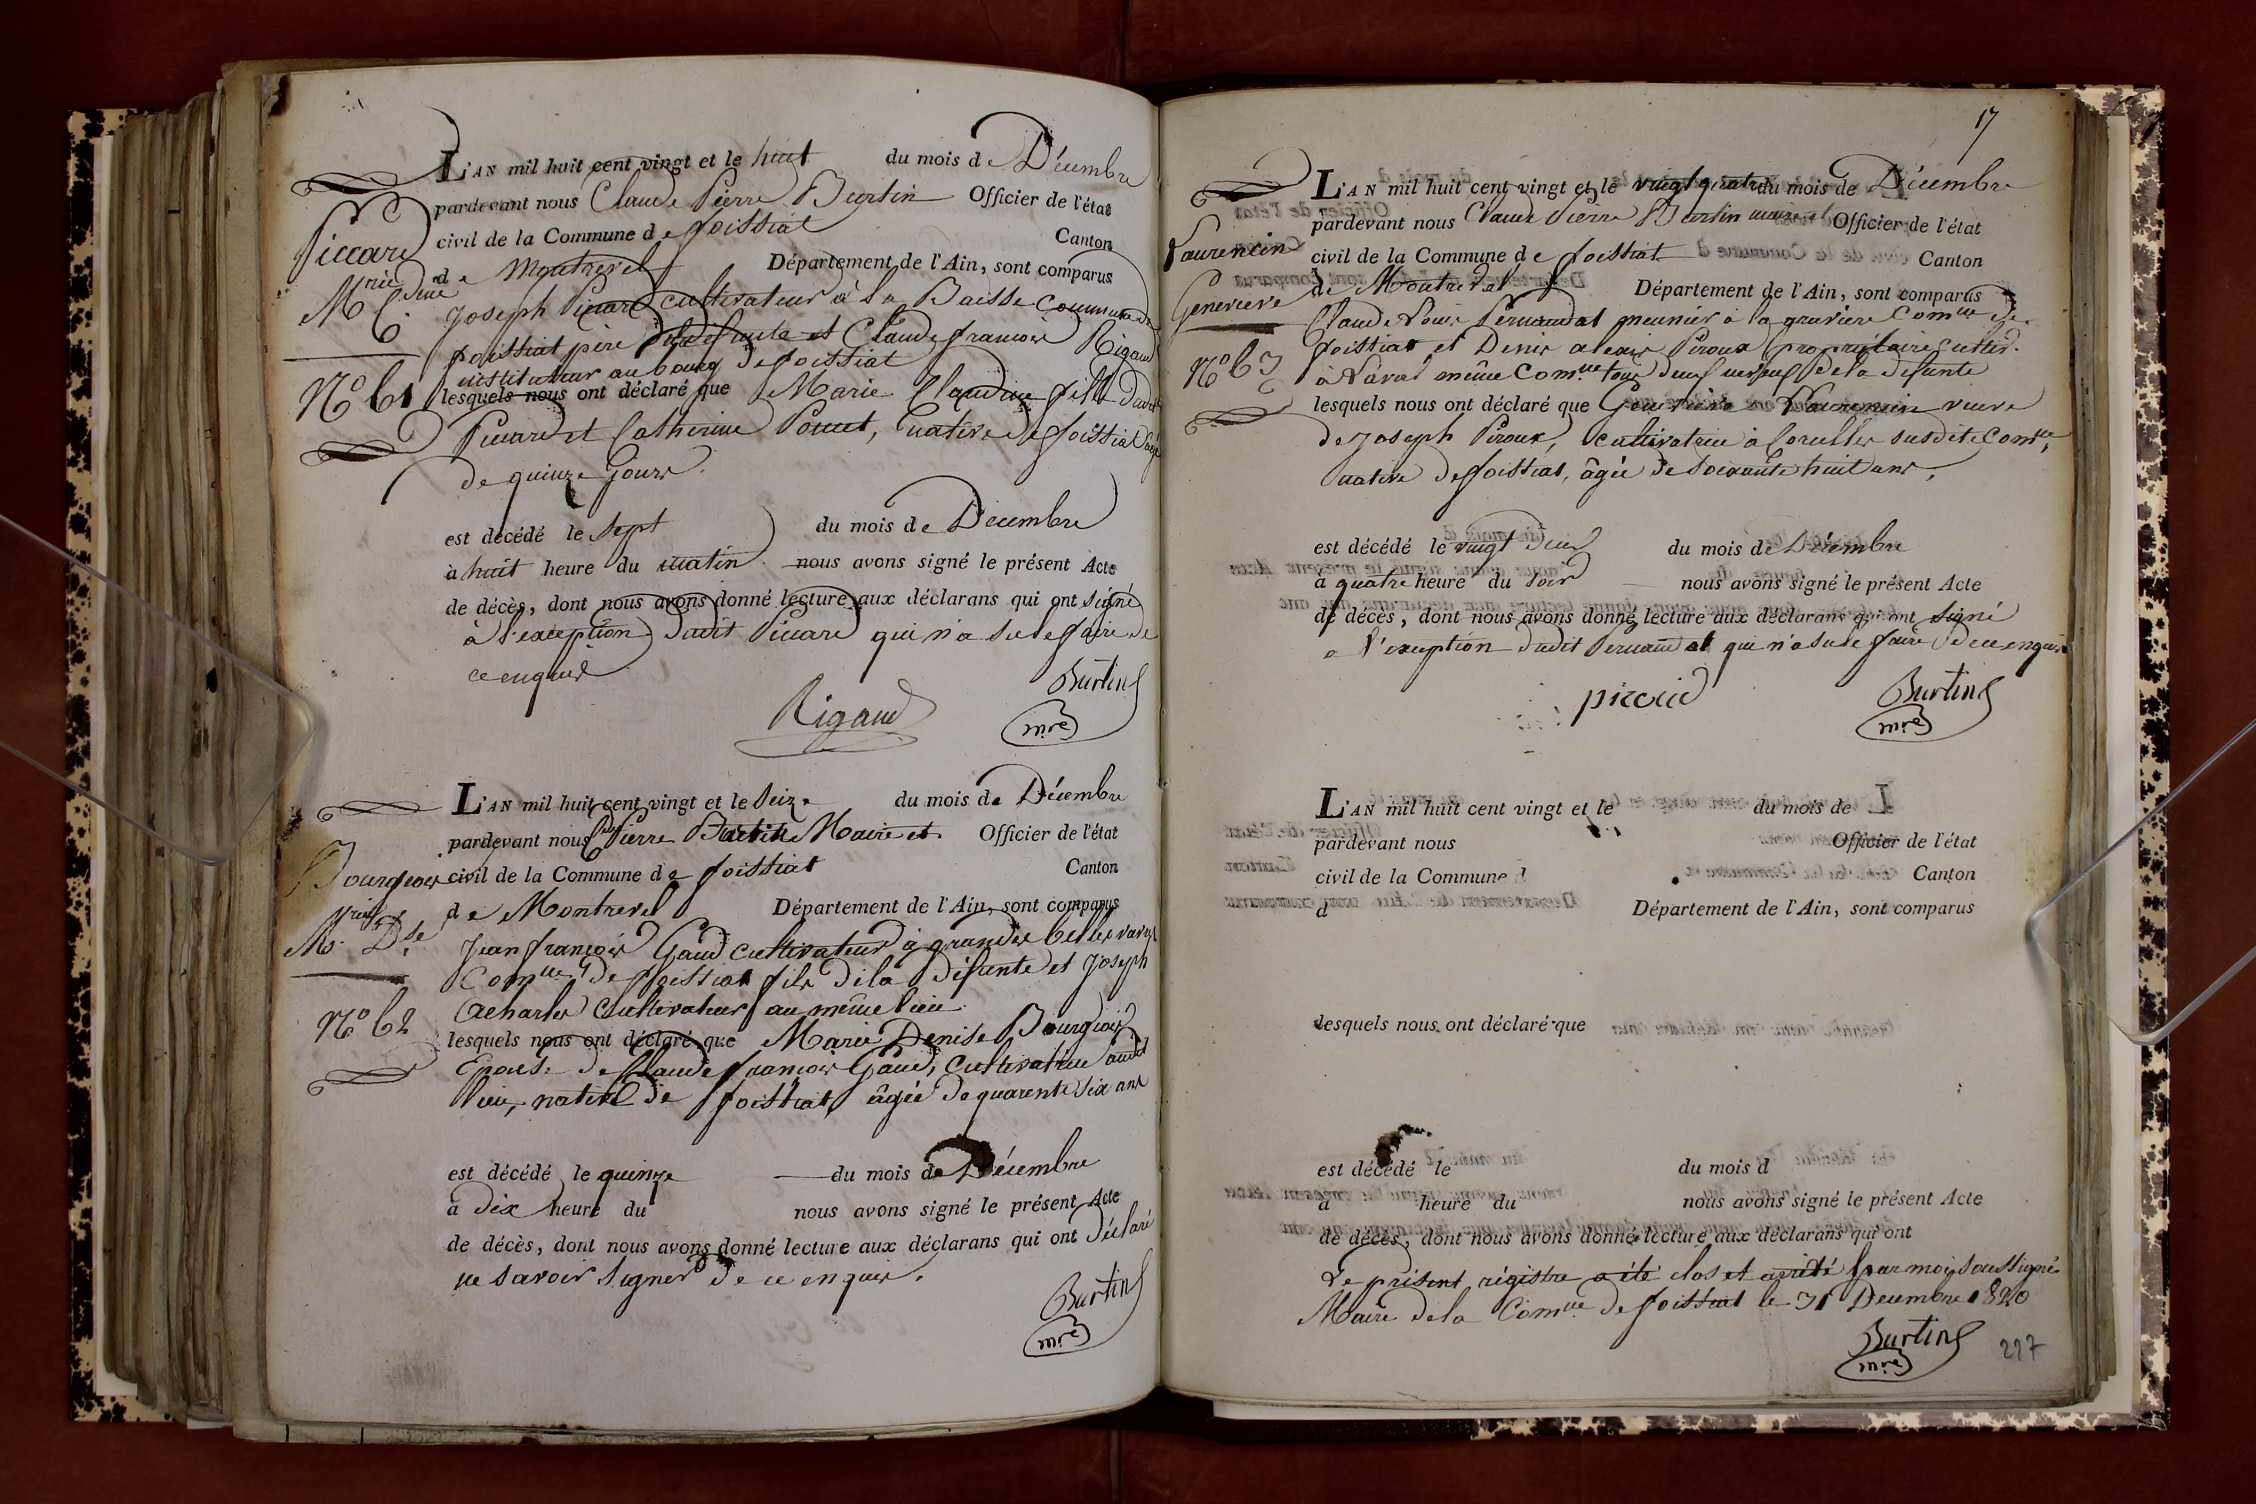 L'AN mil huit cent vingt et le huit du mois de Décembre
pardevant nous Claude Pierre Burtin Officier de l'état
civil de la Commune de foissiat Canton
de Montrevel Département de l'Ain, sont comparus
Piccard
M.rie C.dine
N.o 61
Joseph Piccard cultivateur à la Baisse commune de
foissiat père de la défunte et Claude françois Rigaud
instituteur au bourg de foissiat
lesquels nous ont déclaré que Marie Claudine fille dudit
Piccard et Catherine Poncet, native de foissiat âgée
de quinze jours.
est décédé le sept du mois de Décembre
à huit heure du matin nous avons signé le présent Acte
de décès, dont nous avons donné lecture aux déclarans qui ont signé
à l'exception dudit Piccard qui n'a su le faire de
ce enquis
Rigaud
Burtin
m.re
L'AN mil huit cent vingt et le seize du mois de Décembre
pardevant nous Cde Pierre Burtin Maire et Officier de l'état
civil de la Commune de foissiat Canton
de Montrevel Département de l'Ain, sont comparus
Bourgeois
M.rie D.se
N.o 62
Jean françois Gaud cultivateur à grandes belles
Com.ne de foissiat fils de la défunte et Joseph
cultivateur au même lieu
lesquels nous ont déclaré que Marie Denise Bourgeois
Epouse de Claude françois Gaud, cultivatrice audit
lieu, native de foissiat, âgée de quarente six ans
est décédé le quinze du mois de Décembre
à dix heure du nous avons signé le présent Acte
de décès, dont nous avons donné lecture aux déclarans qui ont déclaré
ne savoir signer de ce enquis.
Burtin
m.re
17
L'AN mil huit cent vingt et le vingt quatre du mois de Décembre
pardevant nous Claude Pierre Burtin maire et Officier de l'état
civil de la Commune de foissiat Canton
de Montrevel Département de l'Ain, sont comparus
Laurencin
Genevieve
N.o 63
Claude Louis meunier à la gravière Com.ne de
foissiat et Denis alexis Piroux propriétaire cultiv.
à Laval même Com.ne tous deux neveux de la défunte
lesquels nous ont déclaré que Genevieve Laurencin veuve
de Joseph Piroux, cultivatrice à Corcelles susdite Com.ne,
native de foissiat, âgée de soixante huit ans,
est décédé le vingt deux du mois de Décembre
à quatre heure du soir nous avons signé le présent Acte
de décès, dont nous avons donné lecture aux déclarans qui ont signé
a l'exception dudit qui n'a su le faire de ce enquis
Burtin
m.re
L'AN mil huit cent vingt et le du mois de
pardevant nous Officier de l'état
civil de la Commune d Canton
d Département de l'Ain, sont comparus
lesquels nous ont déclaré que
est décédé le du mois d
à heure du nous avons signé le présent Acte
de décès, dont nous avons donné lecture aux déclarans qui ont
Le présent régistre a été clos et arrêté par moi soussigné
Maire de la Com.ne de foissiat le 31 Decembre 1820
Burtin
m.re
227